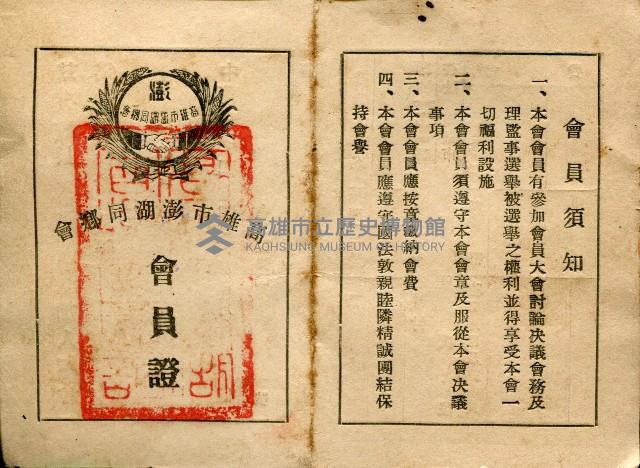 會員須知
一、本會會員有參加會員大會討論決議會務及
理監事選舉被選舉之權利並得享受本會一
切福利設施
二、本會會員須遵守本會會章及服從本會決議
事項
三、本會會員應按章繳納會費
四、本會會員應遵守國法敦親睦隣精誠團結保
持會譽
澎
高雄市澎湖同鄉會
高雄市澎湖同鄉會
會員證
高雄市立歷史博物館
KAOHSIUNG MUSEUM OF HISTORY